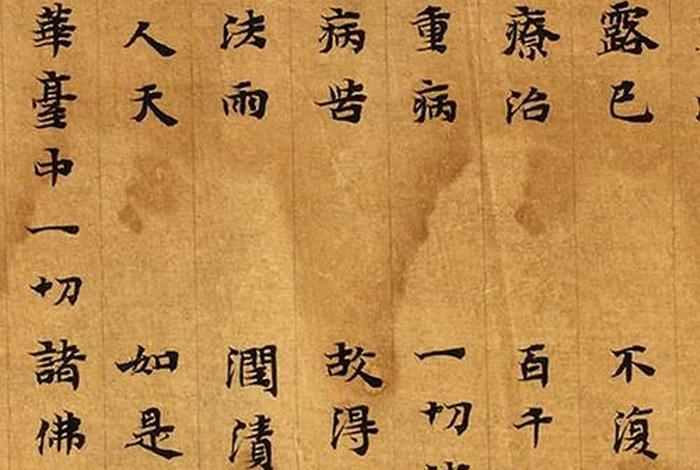 露已 不復
療治 百千
重病 一切
病苦 故得
法雨 潤漬
人天 如是
華臺中一切諸佛